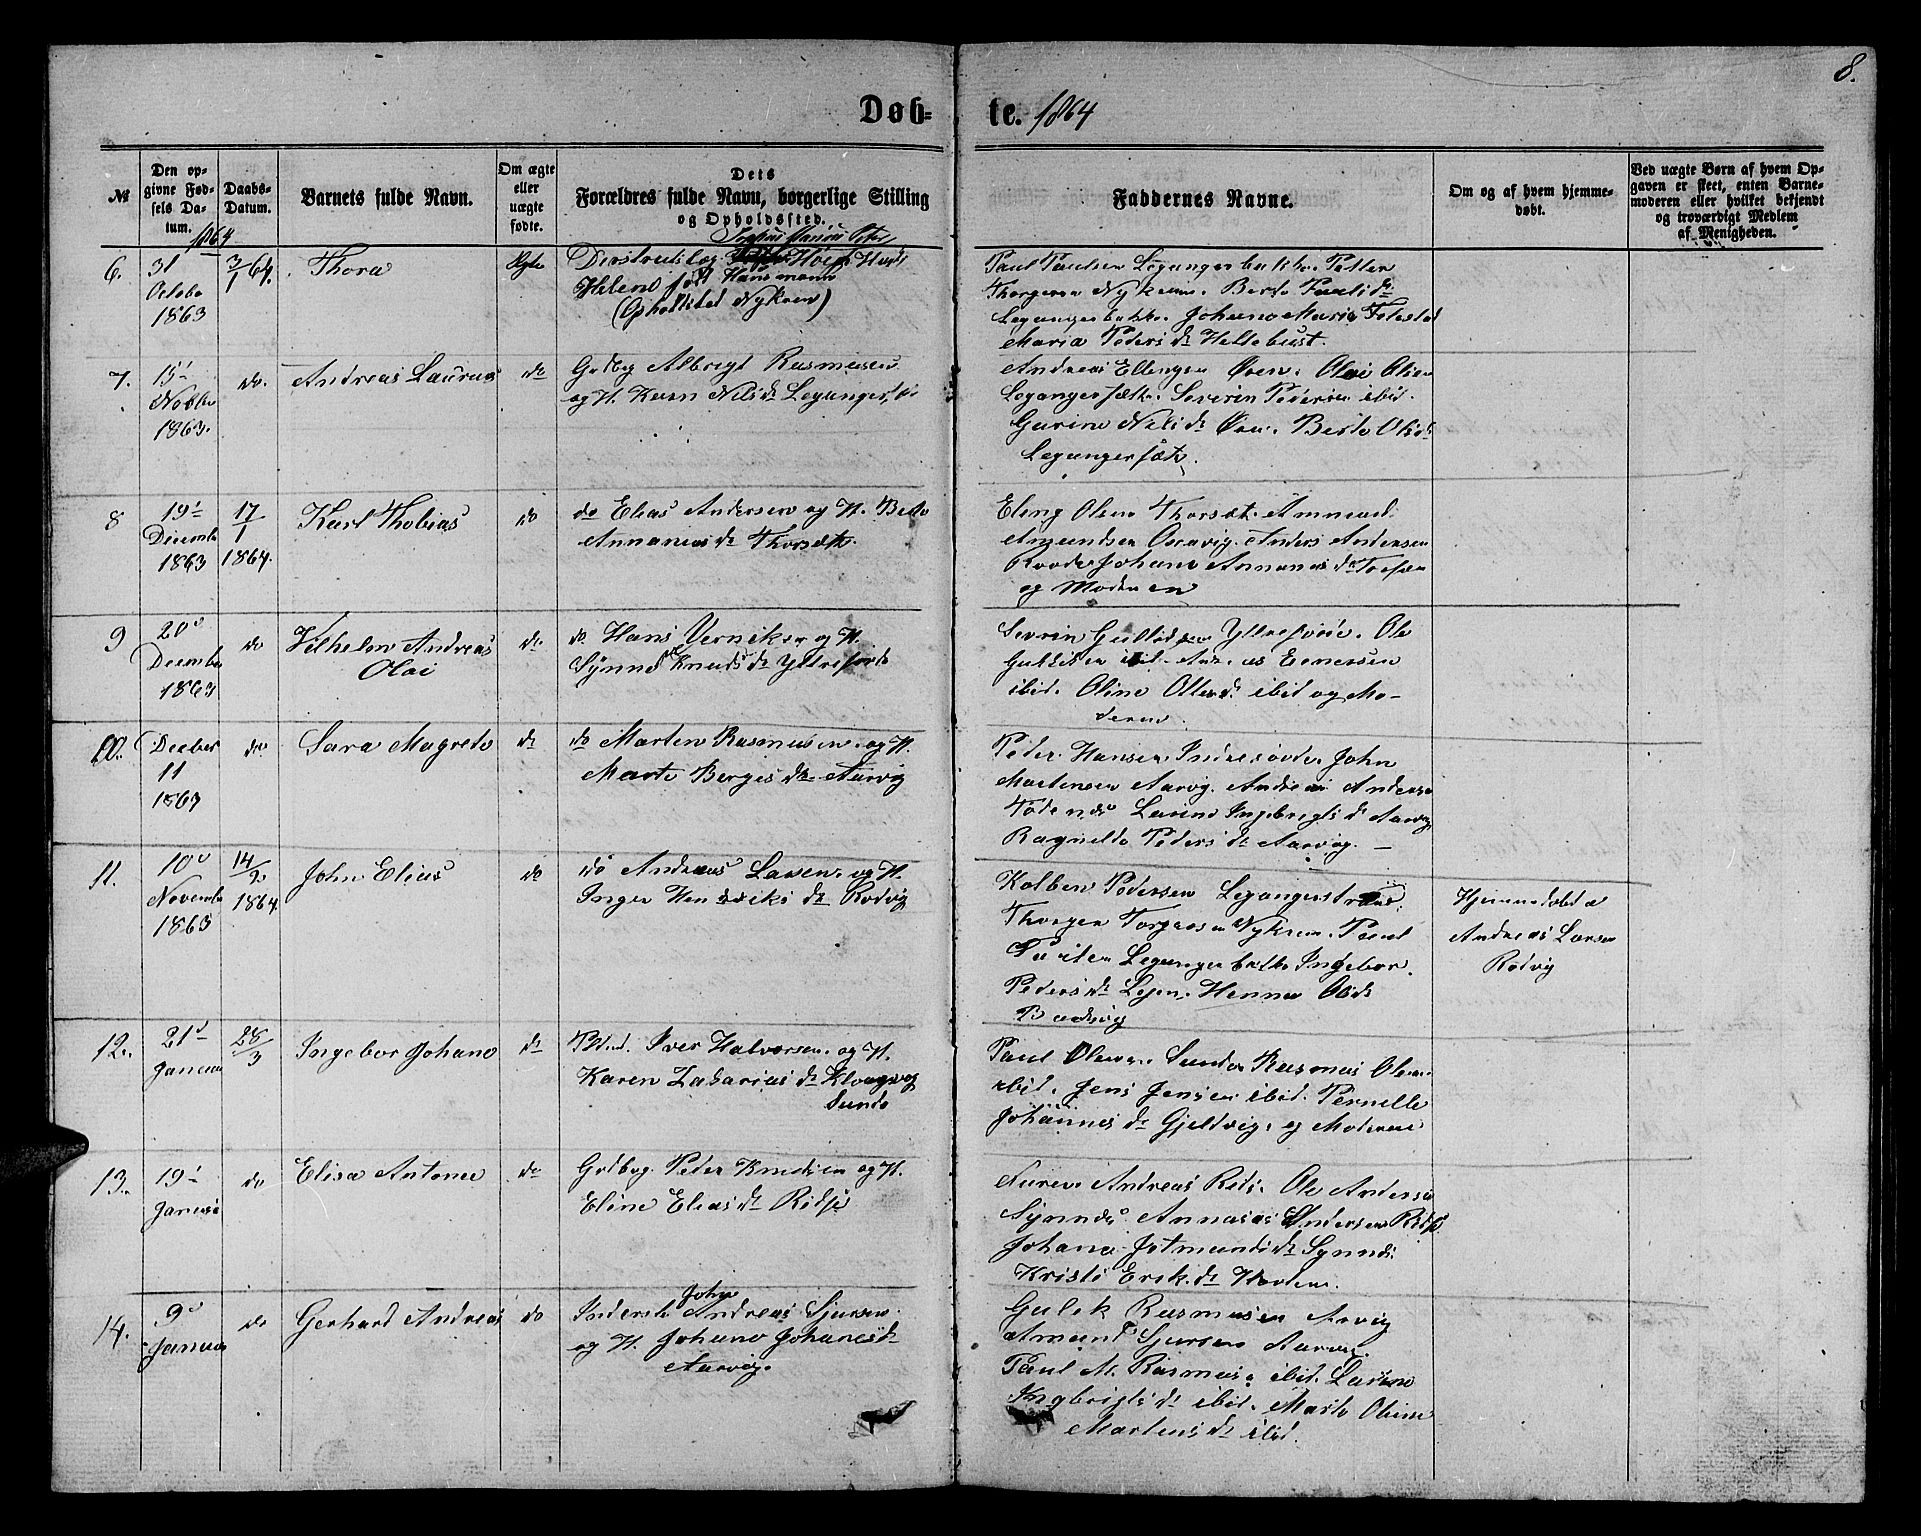 8.
Døb= te. 1864
№
Den op-
givne Fød-
sels Da-
tum.
1864
Daabs-
Datum.
Barnets fulde Navn.
Om ægte
eller
uægte
fødte.
Dets
Forældres fulde Navn, borgerlige Stilling
og Opholdssted.
Faddernes Navne.
Om og af hvem hjemme-
døbt.
Ved uægte Børn af hvem Op-
gaven er skeet, enten Barne-
moderen eller hvilket bekjendt
og troværdigt Medlem
af Menigheden.
6. 31 Octobr 1863
3/1 64.
Thora
Ægte
Peter
Helene født Hansmann
(Opholdsted Nykrem)
Paul Paulsen Legangerbakke. Petter
Thorgersen Nykrem. Berte Paulsdr
Legangerbakke. Johane Marie
Maria Pedersdr Hellebust.
7. 15 Novbr 1863.
do.
Andreas Laurus
do
Gdbg Albrigt Rasmusen
og H. Karn Nilsdr Leganger
Andreas Ellingsen Øren. Olai Olsen
Legangersæth. Severin Pedersen ibid.
Gurine Nilsdr Øren. Berte Olsdr
Legangersæth.
8 19 Decemb 1863
17/1 1864.
Karl Thobias
do
do Elias Andersen og H. Berte
Annaniasdr Thorsæth.
Eling Olsen Thorsæt. Ammund
Amundsen Osravig. Anders Andersen
Johane Annaniasdr
og Moderen
9 20 December 1863
do
Vilhelm Andreas
Olai
do
do Hans Verniksen og H.
Synnøe Knudsdr Yttrefjorde
Sevrin Gulliksen Yttrefjorde. Ole
Gulliksen ibid. Enersen
ibid. Oline Olsdr ibid og Mo-
deren.
10. Decber 11 1863
do
Sara Magrete
do
do Marten Rasmusen. og H.
Marte Bergesdr Aarvig
Peder Hansen John
Martensen Aarvig. Andreas Andersen
Larine Ingebrigtsdr Aarvig
Ragnilda Pedersdr Aarvig. —
11. 10 November 1863
14/2 1864.
John Elias
do
do Andreas Larsen. og H.
Inger Hendriksdr Rotvig
Kolben Pedersen Legangerstrand.
Thorger Torgersen Nykrem. Paul
Paulsen Legangerbakke Ingebor
Pedersdr Henna Olsdr
Hjemmedøbt a
Andreas Larsen
Rotvig
12. 21 Januar
28/3
Ingebor Johane
do
Iver Halvorsen. og H.
Karen Zakariasdr Kloagsvog
Sunde
Paul Olsen. Sunde Rasmus Olsen
ibid. Jens Jensen ibid. Pernelle
Johannesdr Gjeldvig. og Moderen
13. 19 Januar
do
Elisa Antone
do
Grdbg. Peder Knudsen og H.
Eline Eliasdr Ridsje
Andreas Ole Andersen
Synnes. Annanias Andersen
Johane Synnes.
14. 9 Januar
do
Gerhard Andreas
do
John
Inderste Andreas Sjursen.
og H. Johane Johanesdr
Aarvig.
Gulek Rasmusen Arvig
Amund Sjursen Aarvig.
Paul M. Rasmusen ibid. Larine
Ingbrigtsdr ibid. Marte Oline
Martensdr ibid.